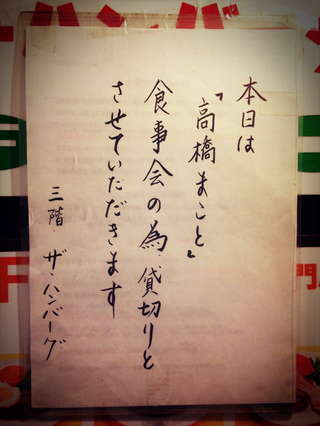 本日は
「高橋まこと」
食事会の為、貸切りと
させていただきます
三階 ザ・ハンバーグ